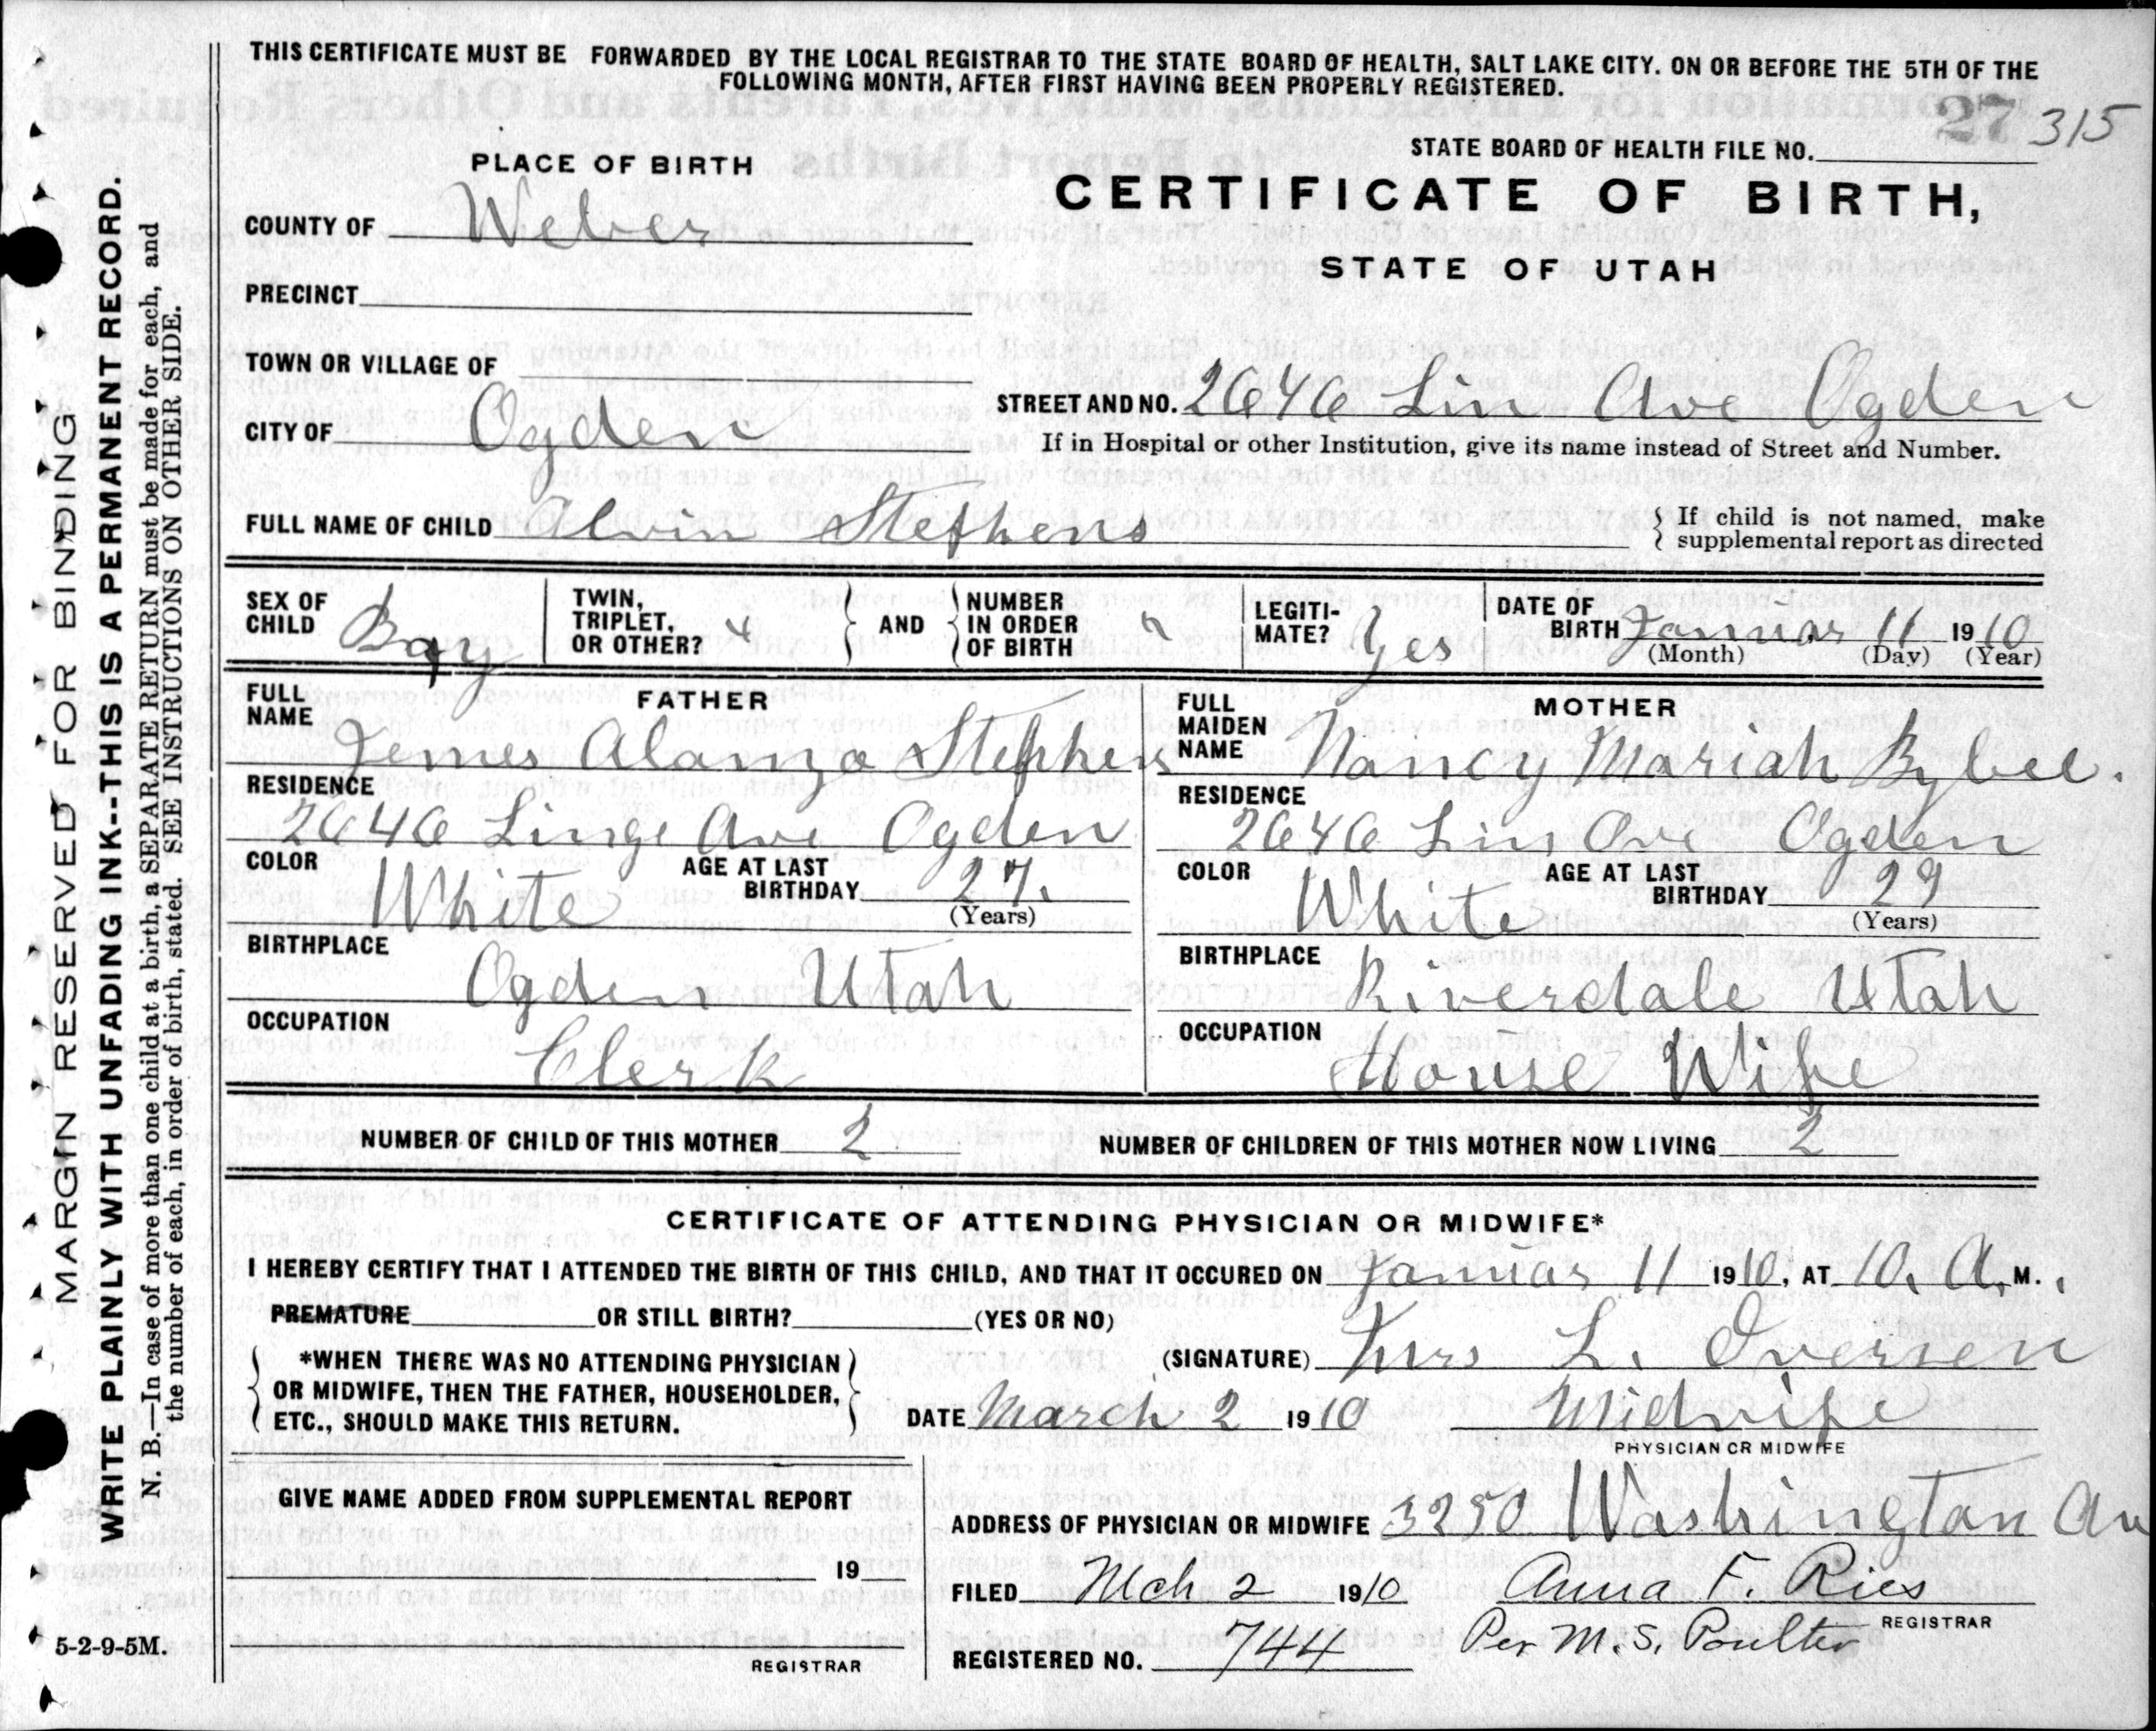 THIS CERTIFICATE MUST BE FORWARDED BY THE LOCAL REGISTRAR TO THE STATE BOARD OF HEALTH, SALT LAKE CITY. ON OR BEFORE THE 5TH OF THE
FOLLOWING MONTH, AFTER FIRST HAVING BEEN PROPERLY REGISTERED.
27 315
STATE BOARD OF HEALTH FILE NO.
PLACE OF BIRTH
CERTIFICATE OF BIRTH,
STATE OF UTAH
COUNTY OF Weber
PRECINCT
TOWN OR VILLAGE OF
STREET AND NO. 2646 Lin Ave Ogden
CITY OF Ogden
If in Hospital or other Institution, give its name instead of Street and Number.
FULL NAME OF CHILD Alvin Stephens
If child is not named, make
supplemental report as directed
SEX OF CHILD Boy
TWIN, TRIPLET, OR OTHER?
AND
NUMBER IN ORDER OF BIRTH
LEGITI-MATE? Yes
DATE OF BIRTH Januar 11 1910
(Month) (Day) (Year)
FATHER
FULL NAME James Alanzo Stephens
RESIDENCE
2646 Linge Ave Ogden
COLOR White AGE AT LAST BIRTHDAY 27.
(Years)
BIRTHPLACE
Ogden Utah
OCCUPATION
Clerk
MOTHER
FULL MAIDEN NAME Nancy Mariah Bybee.
RESIDENCE
2646 Lin Ave Ogden
COLOR White AGE AT LAST BIRTHDAY 29
(Years)
BIRTHPLACE
Riverdale Utah
OCCUPATION
House Wife
NUMBER OF CHILD OF THIS MOTHER 2 NUMBER OF CHILDREN OF THIS MOTHER NOW LIVING 2
CERTIFICATE OF ATTENDING PHYSICIAN OR MIDWIFE*
I HEREBY CERTIFY THAT I ATTENDED THE BIRTH OF THIS CHILD, AND THAT IT OCCURED ON Januar 11 1910, AT 10. A. M.
PREMATURE OR STILL BIRTH? (YES OR NO)
*WHEN THERE WAS NO ATTENDING PHYSICIAN
OR MIDWIFE, THEN THE FATHER, HOUSEHOLDER,
ETC., SHOULD MAKE THIS RETURN.
(SIGNATURE) Mrs L. Iversen
DATE March 2 1910 Midwife
PHYSICIAN OR MIDWIFE
GIVE NAME ADDED FROM SUPPLEMENTAL REPORT
19
REGISTRAR
ADDRESS OF PHYSICIAN OR MIDWIFE 3250 Washington Av
FILED Mch 2 1910 Anna F. Ries
REGISTRAR
REGISTERED NO. 744 Per M. S. Poulter
MARGIN RESERVED FOR BINDING
WRITE PLAINLY WITH UNFADING INK--THIS IS A PERMANENT RECORD.
N. B.—In case of more than one child at a birth, a SEPARATE RETURN must be made for each, and
the number of each, in order of birth, stated. SEE INSTRUCTIONS ON OTHER SIDE.
5-2-9-5M.